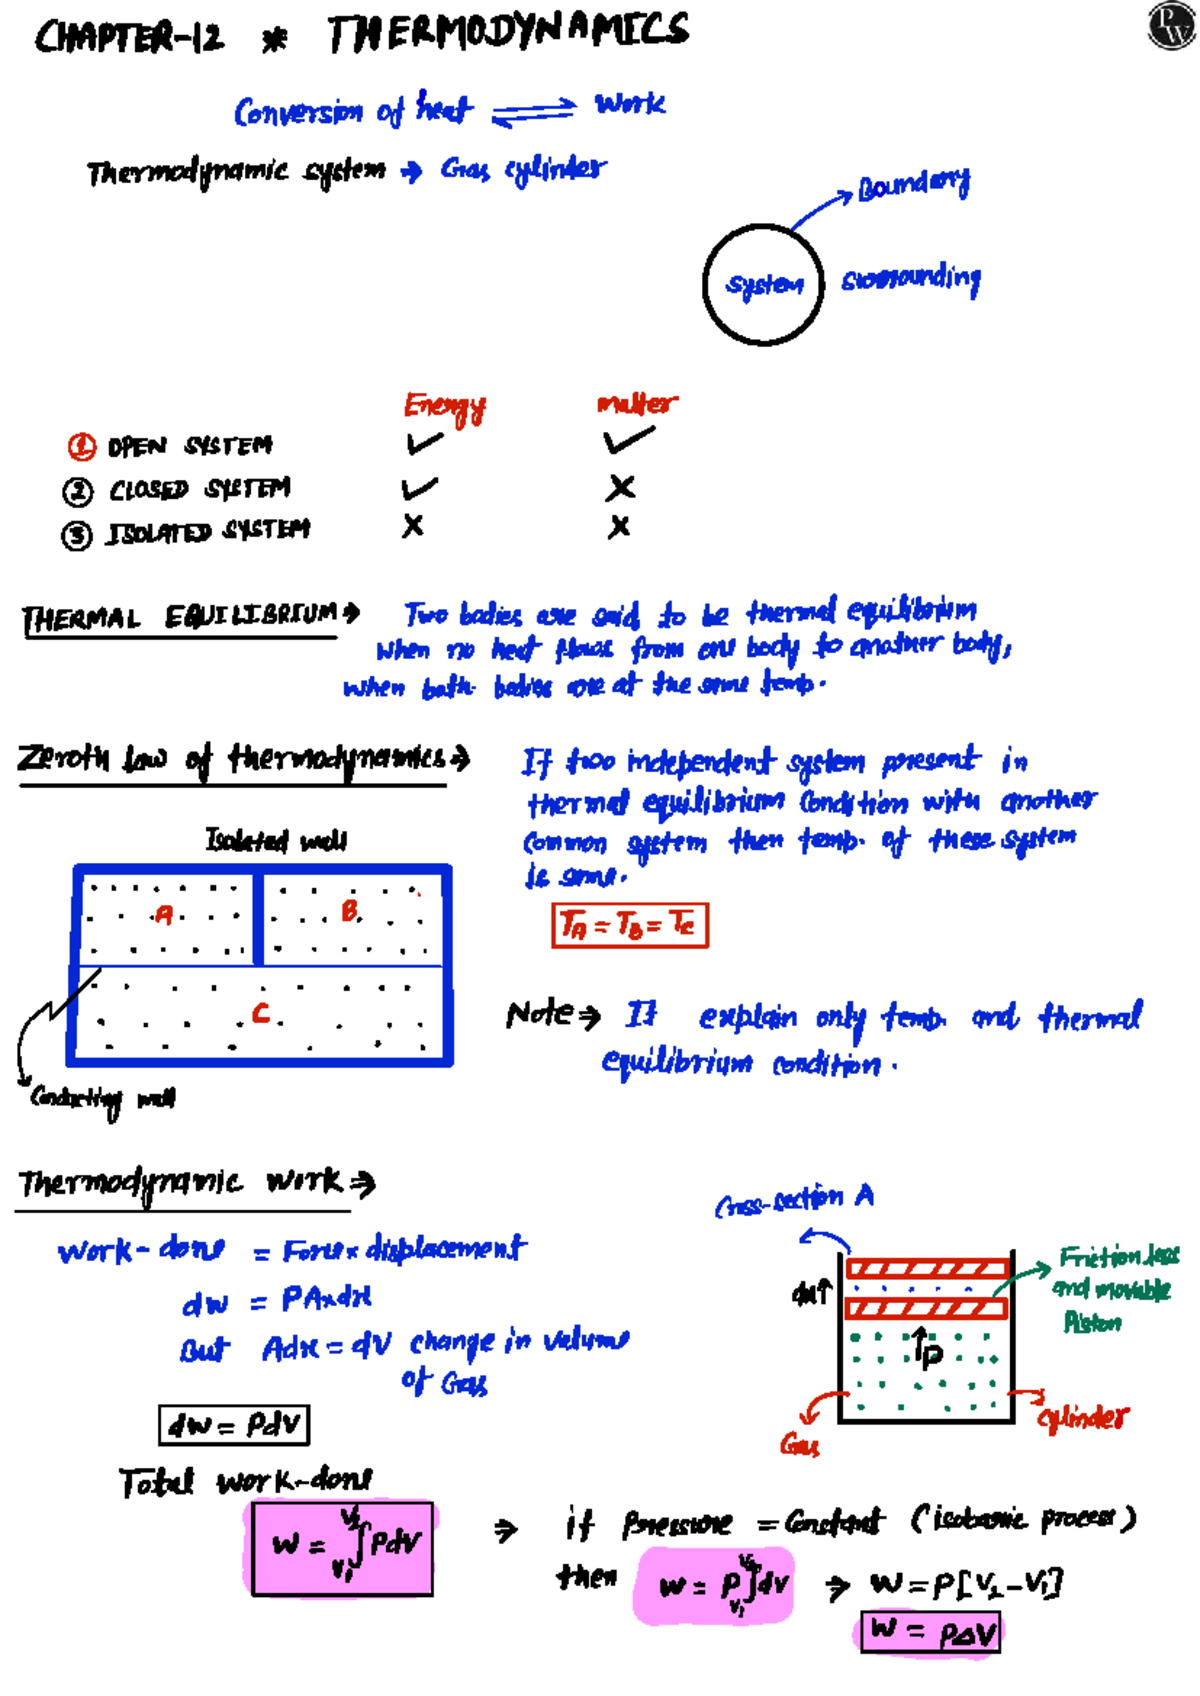 CHAPTER-12 * THERMODYNAMICS
PW
Conversion of heat ⇌ Work
Thermodynamic system → Gas cylinder
Boundary
System
Surrounding
Energy matter
① OPEN SYSTEM ✓ ✓
② CLOSED SYSTEM ✓ ×
③ ISOLATED SYSTEM × ×
THERMAL EQUILIBRIUM⇒ Two bodies are said to be thermal equilibrium
when no heat flows from one body to another body,
when both bodies are at the same temp.
Zeroth law of thermodynamics⇒ If two independent system present in
thermal equilibrium condition with another
common system then temp. of these system
is same.
Isolated wall
A B
C
Conducting wall
TA = TB = Tc
Note⇒ It explain only temp. and thermal
equilibrium condition.
Thermodynamic work⇒
Work-done = Force x displacement
dw = PA x dx
But Adx = dV change in volume
of Gas
dw = PdV
Cross-section A
dx↑
Friction less
and movable
Piston
↑P
Gas
cylinder
Total work-done
W = V1∫V2 PdV ⇒ if Pressure = Constant (isobaric process)
then W = P V1∫V2 dV ⇒ W = P[V2-V1]
W = PΔV